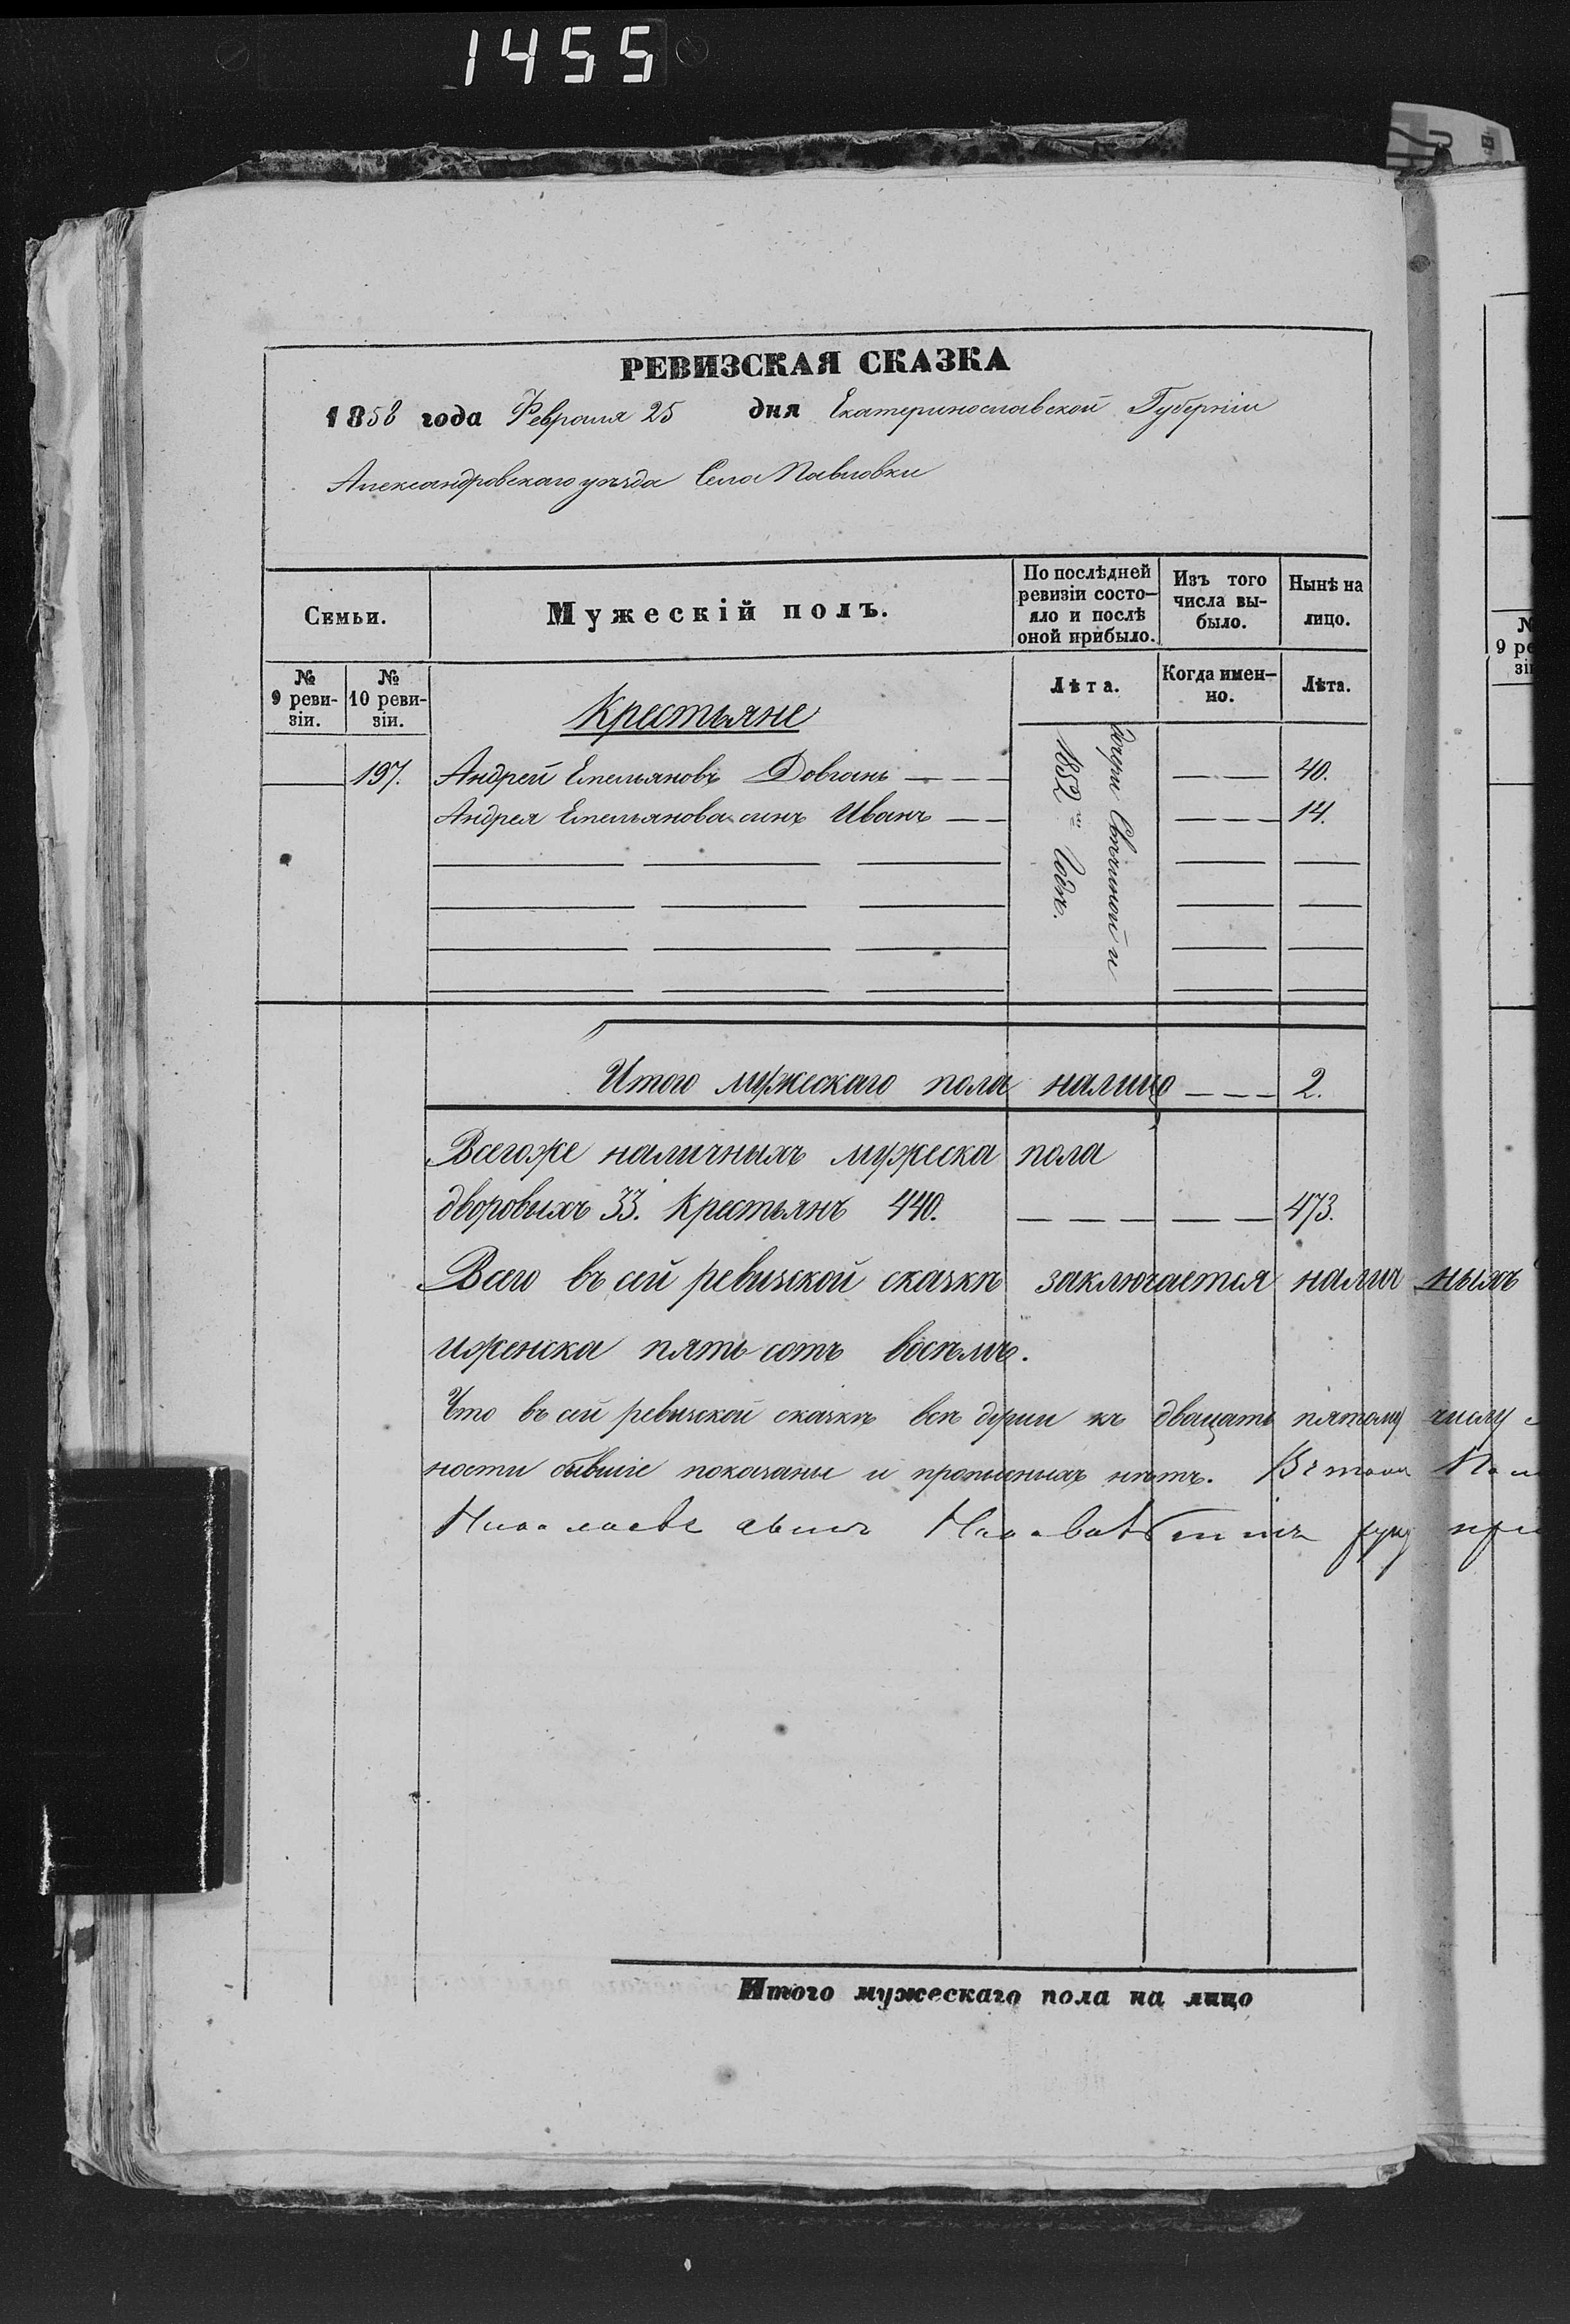 1455
РЕВИЗСКАЯ СКАЗКА
1858 года Февраля 25 дня Екатеринославской Губерніи
Александровскаго уѣзда Села Павловки
Семьи.
Мужескій полъ.
По послѣдней ревизіи состо-
яло и послѣ оной прибыло.
Изъ того числа вы-
было.
Нынѣ на лицо.
№ 9 реви-
зіи.
№ 10 реви-
зіи.
Лѣта.
Когда имен-
но.
Лѣта.
Крестьяне
197. Андрей Емельяновъ Довгань 40.
Андрея Емельянова сынъ Иванъ 14.
1852 Годѣ.
Итого мужескаго пола налицо 2.
Всегоже наличныхъ мужеска пола
дворовыхъ 33. Крестьянъ 440. 473.
Всего въ сей ревизской сказкѣ заключается наличныхъ
иженска пять сотъ восѣмъ.
Что въ сей ревизской сказкѣ всѣ души къ двацать пятому числу
ности бывшіе показаны и прописныхъ нѣтъ.
Итого мужескаго пола на лицо
№
9 ре
зі